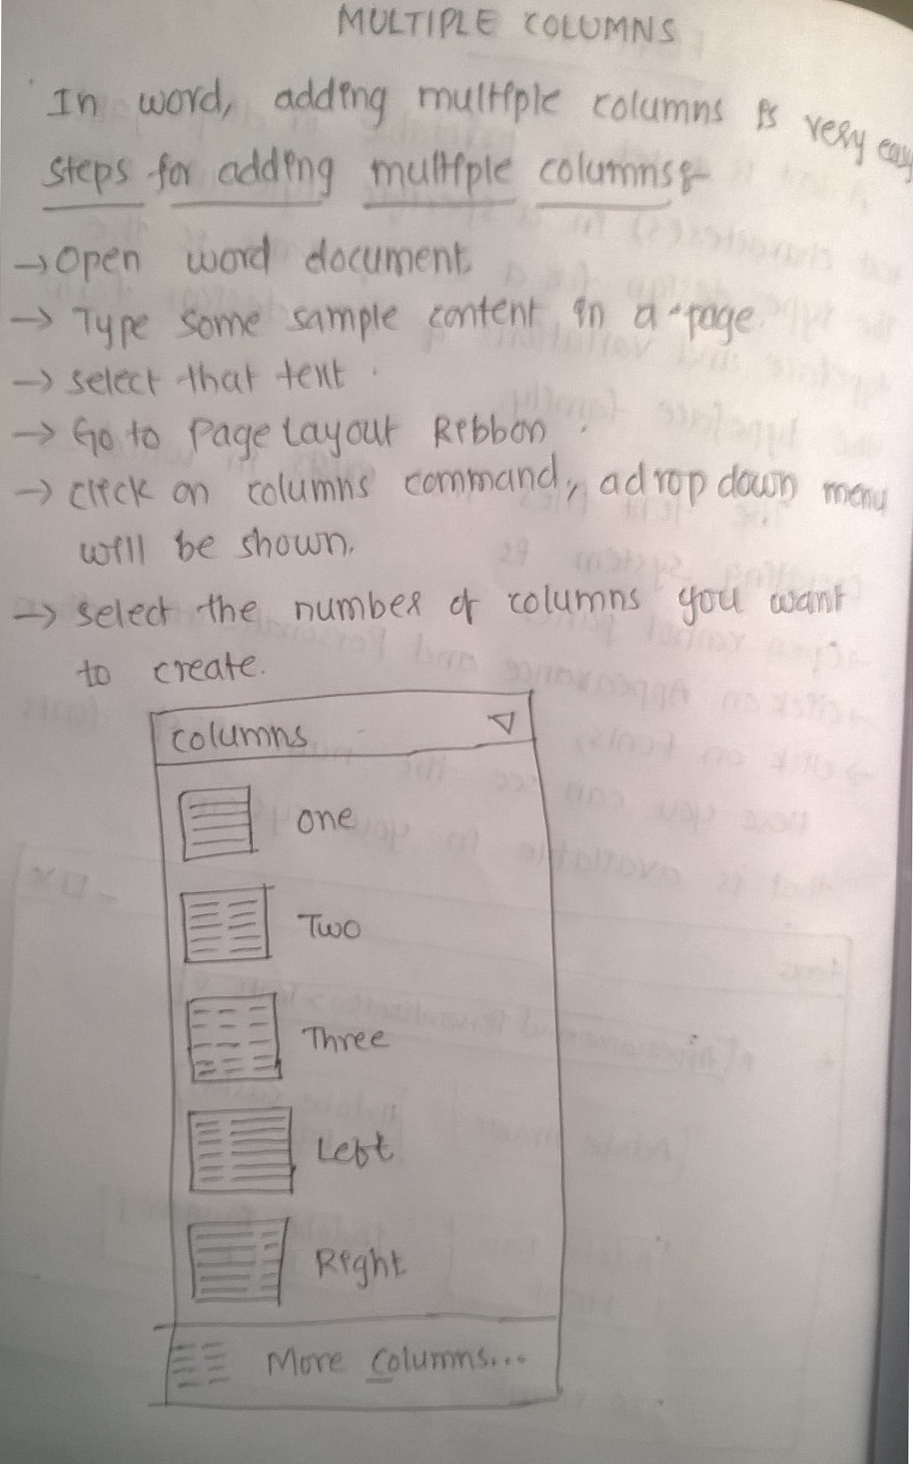 MULTIPLE COLUMNS
In word, adding multiple columns is very easy
steps for adding multiple columns:-
→ Open word document.
→ Type some sample content in a page.
→ select that text.
→ Go to Page Layout Ribbon.
→ click on columns command, a drop down menu
will be shown.
→ select the number of columns you want
to create.
columns
one
Two
Three
Left
Right
More Columns...